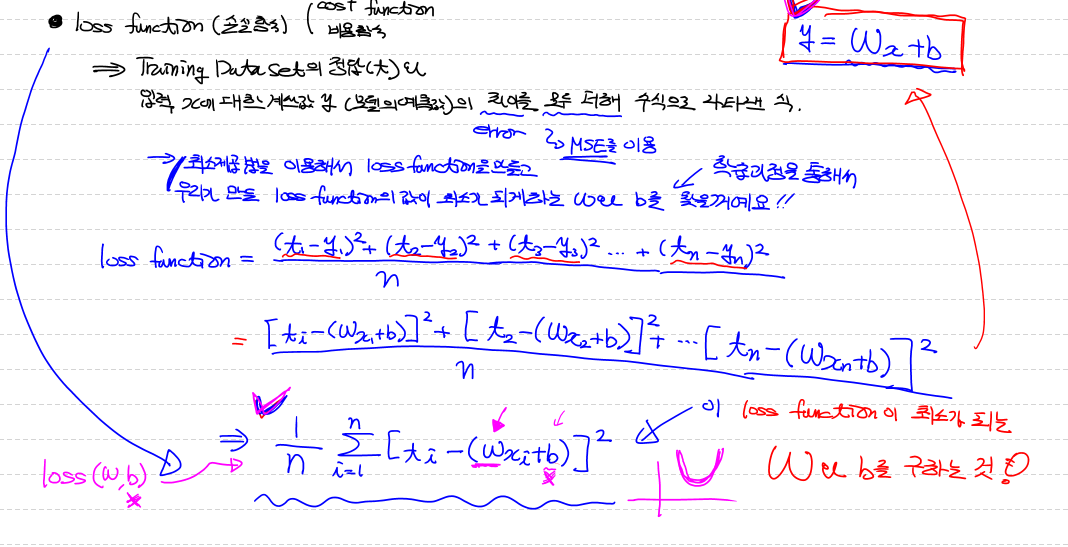 cost function
• loss function (손실함수) ( 비용함수
y = Wx+b
⇒ Training Data Set의 정답(t)과
입력 x에 대한 계산값 y (모델의 예측값)의 차이를 모두 더해 수식으로 나타낸 식.
error ↳ MSE를 이용
→ 최소제곱법을 이용해서 loss function을 만들고
우리가 만든 loss function의 값이 최소가 되게하는 W와 b를 찾을꺼예요!!
학습과정을 통해서
loss function = (t₁-y₁)²+(t₂-y₂)²+(t₃-y₃)² ... +(tn-yn)² / n
= [ti-(Wx₁+b)]²+[t₂-(Wx₂+b)]²+ ... [tn-(Wxn+b)]² / n
⇒ 1/n n Σ i=1 [ti-(Wxi+b)]²
이 loss function이 최소가 되는
loss(W,b)
W와 b를 구하는 것!